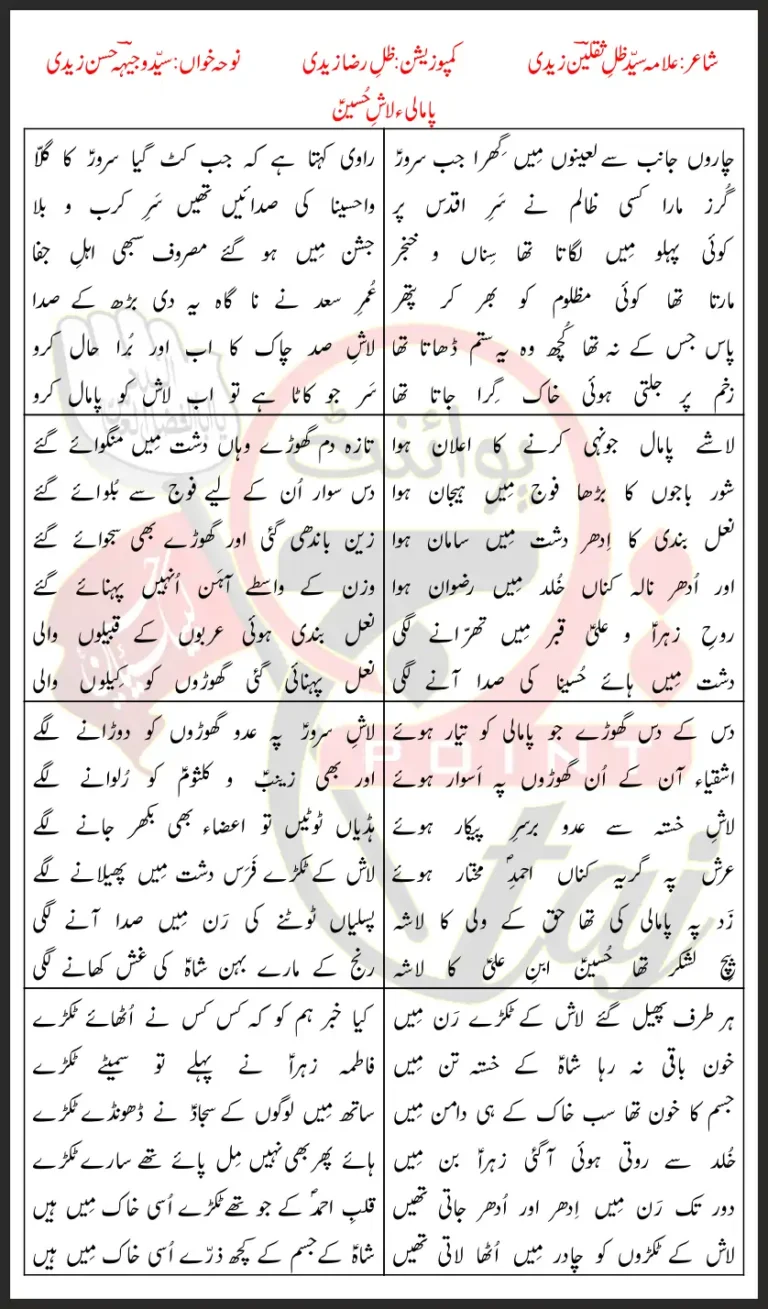 شاعر: علامہ سیّد ظلِ ثقلینؔ زیدی کمپوزیشن: ظلِ رضا زیدی نوحہ خواں: سیّد وجیہہ حسن زیدی
پامالیٔ لاشِ حُسینؑ
چاروں جانب سے لعینوں مِیں گِھرا جب سرورؑ
گُرز مارا کسی ظالم نے سَرِ اقدس پر
کوئی پہلو مِیں لگاتا تھا سِناں و خنجر
مارتا تھا کوئی مظلوم کو بھر کر پتھر
پاس جس کے نہ تھا کُچھ وہ یہ ستم ڈھاتا تھا
زخم پر جلتی ہوئی خاک گِرا جاتا تھا
راوی کہتا ہے کہ جب کٹ گیا سرورؑ کا گلّا
واحسینا کی صدائیں تھیں سَرِ کرب و بلا
جشن مِیں ہو گئے مصروف سبھی اہلِ جفا
عُمرِ سعد نے نا گاہ یہ دی بڑھ کے صدا
لاشِ صد چاک کا اب اور بُرا حال کرو
سَر جو کاٹا ہے تو اب لاش کو پامال کرو
لاشے پامال جونہی کرنے کا اعلان ہوا
شور باجوں کا بڑھا فوج مِیں ہیجان ہوا
نعل بندی کا اِدھر دشت مِیں سامان ہوا
اور اُدھر نالہ کناں خُلد مِیں رضوان ہوا
روحِ زہراؑ و علیؑ قبر مِیں تھرّانے لگی
دشت مِیں ہائے حُسینا کی صدا آنے لگی
تازہ دم گھوڑے وہاں دشت مِیں منگوائے گئے
دس سوار اُن کے لیے فوج سے بُلوائے گئے
زین باندھی گئی اور گھوڑے بھی سجوائے گئے
وزن کے واسطے آہَن اُنہیں پہنائے گئے
نعل بندی ہوئی عربوں کے قبیلوں والی
نعل پہنائی گئی گھوڑوں کو کِیلوں والی
دس کے دس گھوڑے جو پامالی کو تیّار ہوئے
اشقیاء آن کے اُن گھوڑوں پہ اَسوار ہوئے
لاشِ خستہ سے عدو برسرِ پیکار ہوئے
عرش پہ گریہ کناں احمدِؐ مختار ہوئے
زَد پہ پامالی کی تھا حق کے ولی کا لاشہ
بیچ لشکر تھا حُسینؑ ابنِ علیؑ کا لاشہ
لاشِ سرورؑ پہ عدو گھوڑوں کو دوڑانے لگے
اور بھی زینبؑ و کلثومؑ کو رُلوانے لگے
ہڈیاں ٹوٹیں تو اعضاء بھی بکھر جانے لگے
لاش کے ٹکڑے فَرَس دشت مِیں پھیلانے لگے
پسلیاں ٹوٹنے کی رَن مِیں صدا آنے لگی
رنج کے مارے بہن شاہؑ کی غش کھانے لگی
ہر طرف پھیل گئے لاش کے ٹکڑے رَن مِیں
خون باقی نہ رہا شاہؑ کے خستہ تن مِیں
جسم کا خون تھا سب خاک کے ہی دامن مِیں
خُلد سے روتی ہوئی آگئی زہراؑ بن مِیں
دور تک رَن مِیں اِدھر اور اُدھر جاتی تھیں
لاش کے ٹکڑوں کو چادر مِیں اُٹھا لاتی تھیں
کیا خبر ہم کو کہ کس کس نے اُٹھائے ٹکڑے
فاطمہ زہراؑ نے پہلے تو سمیٹے ٹکڑے
ساتھ مِیں لوگوں کے سجادؑ نے ڈھونڈے ٹکڑے
ہائے پھر بھی نہیں مِل پائے تھے سارے ٹکڑے
قلبِ احمدؐ کے جو تھے ٹکڑے اُسی خاک مِیں ہیں
شاہؑ کے جسم کے کچھ ذرّے اُسی خاک مِیں ہیں
پوائنٹ
POINT
taj